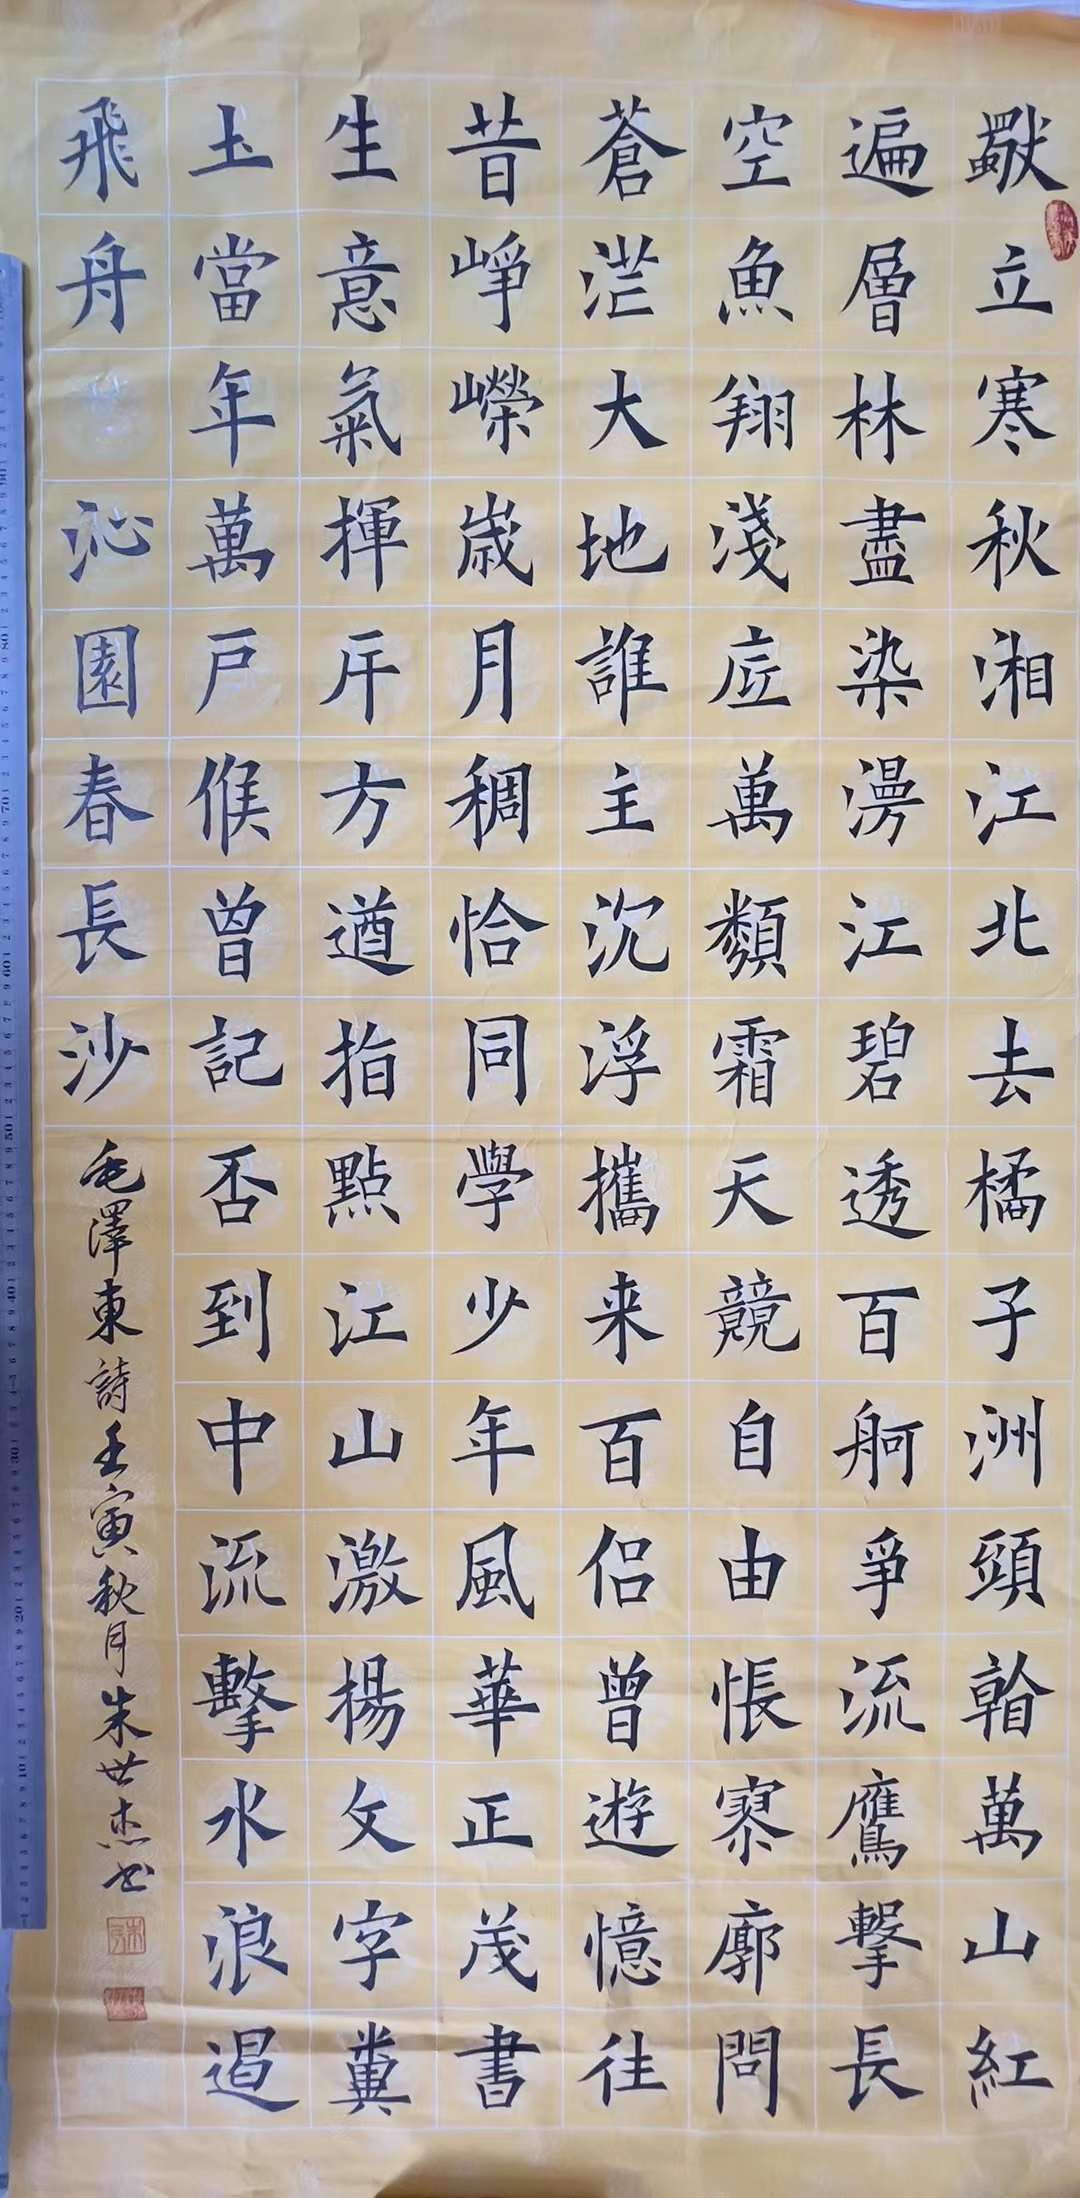 獨立寒秋湘江北去橘子洲頭看萬山紅
遍層林盡染漫江碧透百舸爭流鷹擊長
空魚翔淺底萬類霜天競自由悵寥廓問
蒼茫大地誰主沉浮攜来百侣曾遊憶往
昔崢嶸歲月稠恰同學少年風華正茂書
生意氣揮斥方遒指點江山激揚文字糞
土當年萬戶侯曾記否到中流擊水浪遏
飛舟 沁園春長沙 毛澤東詩壬寅秋月朱世杰书